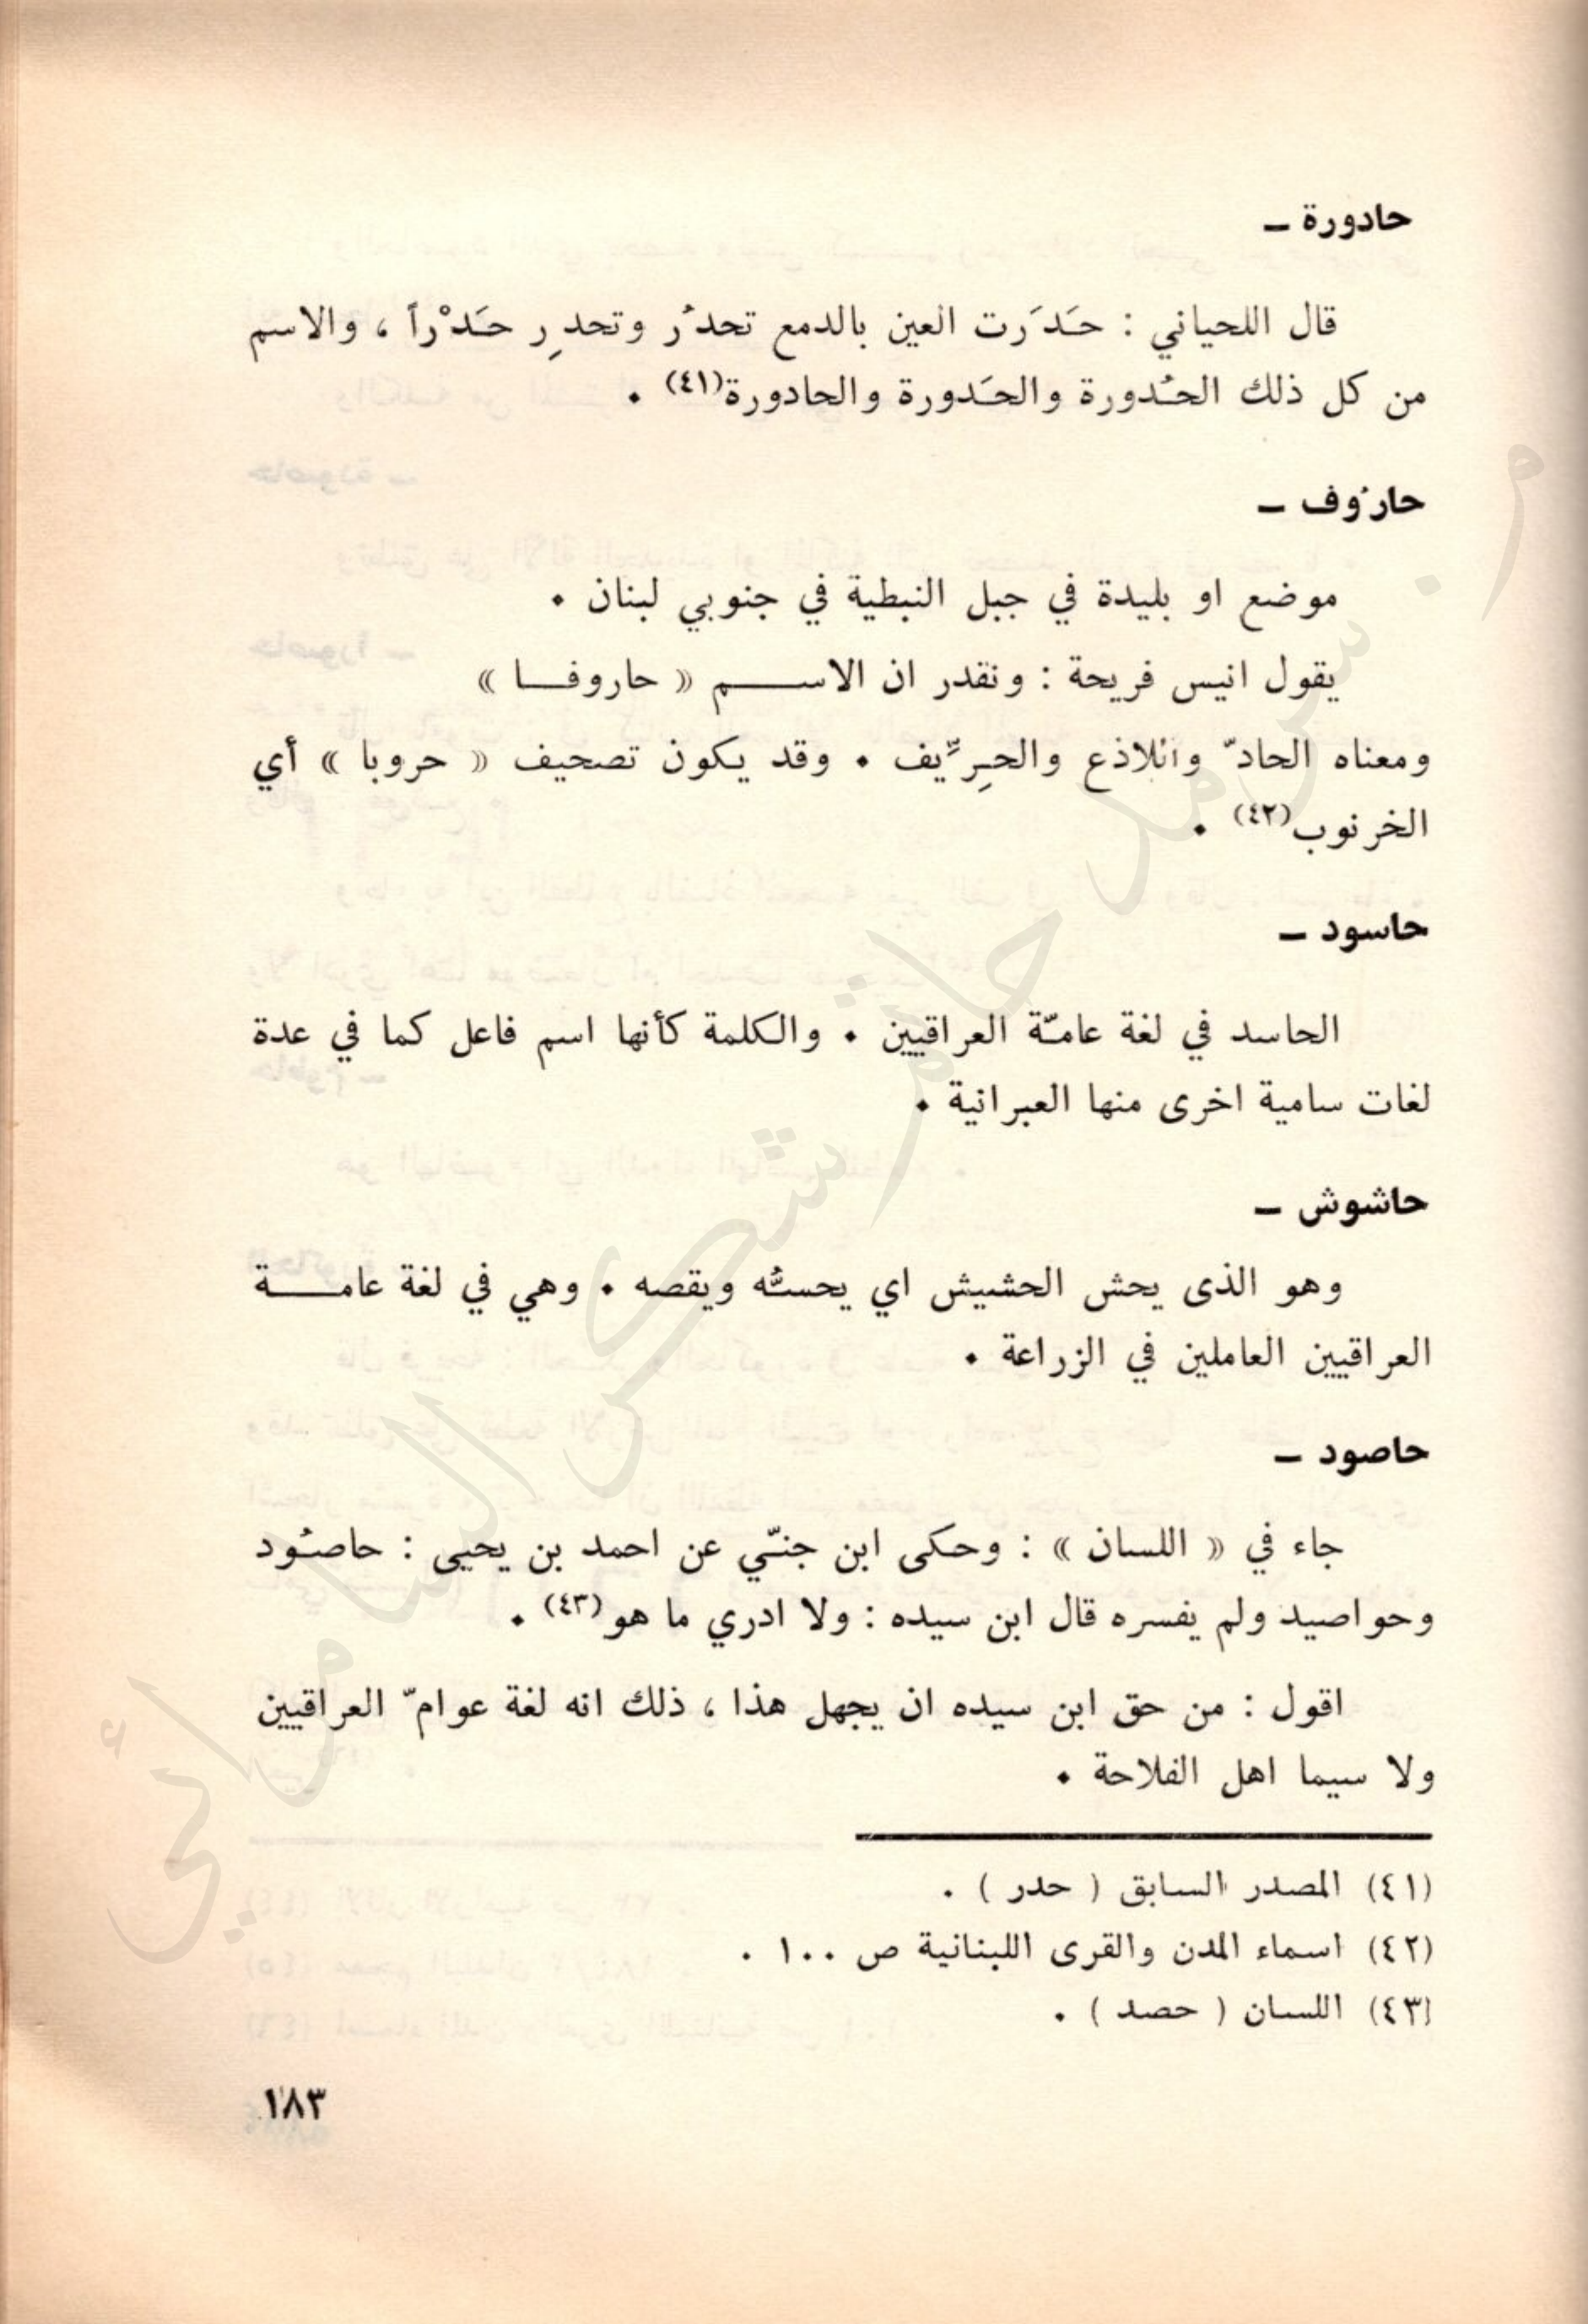 حادورة ـ
قال اللحياني : حَدَرت العين بالدمع تحدُر وتحدِر حَدْراً ، والاسم
من كل ذلك الحُدورة والحَدورة والحادورة(٤١) .
حارُوف ـ
موضع او بليدة في جبل النبطية في جنوبي لبنان .
يقول انيس فريحة : ونقدر ان الاســـم « حاروفـــا »
ومعناه الحادّ واللاذع والحِرِّيف . وقد يكون تصحيف « حروبا » أي
الخرنوب(٤٢) .
حاسود ـ
الحاسد في لغة عامّة العراقيين . والكلمة كأنها اسم فاعل كما في عدة
لغات سامية اخرى منها العبرانية .
حاشوش ـ
وهو الذى يحش الحشيش اي يحسُّه ويقصه . وهي في لغة عامـــة
العراقيين العاملين في الزراعة .
حاصود ـ
جاء في « اللسان » : وحكى ابن جنّي عن احمد بن يحيى : حاصُود
وحواصيد ولم يفسره قال ابن سيده : ولا ادري ما هو(٤٣) .
اقول : من حق ابن سيده ان يجهل هذا ، ذلك انه لغة عوامّ العراقيين
ولا سيما اهل الفلاحة .
(٤١) المصدر السابق ( حدر ) .
(٤٢) اسماء المدن والقرى اللبنانية ص ١٠٠ .
(٤٣) اللسان ( حصد ) .
١٨٣